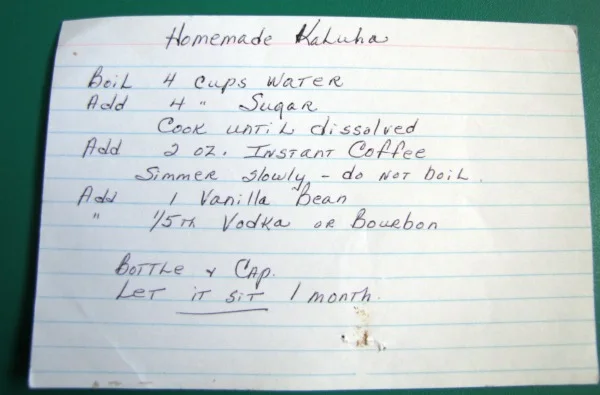 Homemade Kaluha
Boil 4 cups water
Add 4 " Sugar
Cook until dissolved
Add 2 oz. Instant Coffee
Simmer slowly - do not boil.
Add 1 Vanilla Bean
" 1/5th Vodka or Bourbon
Bottle & Cap.
Let it sit 1 month.